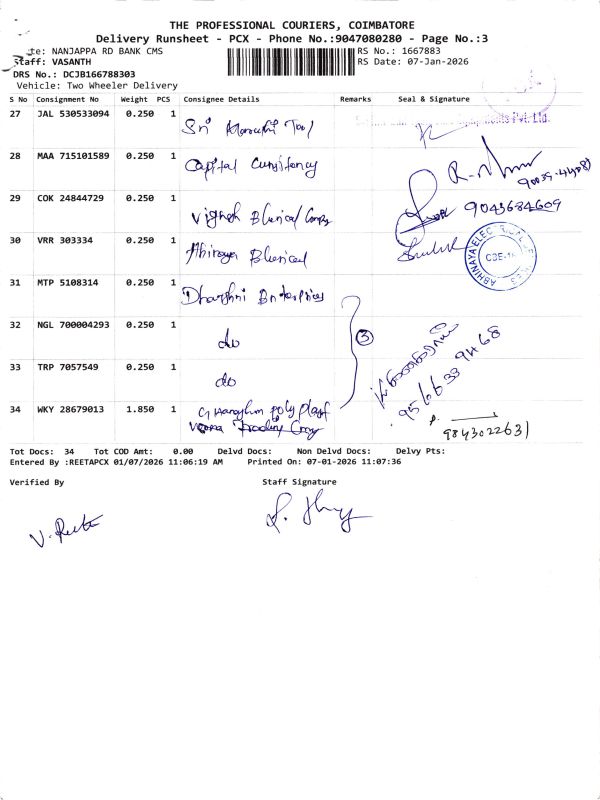 THE PROFESSIONAL COURIERS, COIMBATORE
Delivery Runsheet - PCX - Phone No.:9047080280 - Page No.:3
te: NANJAPPA RD BANK CMS RS No.: 1667883
Staff: VASANTH RS Date: 07-Jan-2026
DRS No.: DCJB166788303
Vehicle: Two Wheeler Delivery
S No Consignment No Weight PCS Consignee Details Remarks Seal & Signature
27 JAL 530533094 0.250 1 Sri Tool Pvt. Ltd.
28 MAA 715101589 0.250 1 Capital
29 COK 24844729 0.250 1 Vignesh 9043684609
30 VRR 303334 0.250 1 ABHINAYA ELEC CBE-1
31 MTP 5108314 0.250 1 Dharshni
32 NGL 700004293 0.250 1 do 3
33 TRP 7057549 0.250 1 do 95663 39468
34 WKY 28679013 1.850 1 poly
9843022631
Tot Docs: 34 Tot COD Amt: 0.00 Delvd Docs: Non Delvd Docs: Delvy Pts:
Entered By :REETAPCX 01/07/2026 11:06:19 AM Printed On: 07-01-2026 11:07:36
Verified By Staff Signature